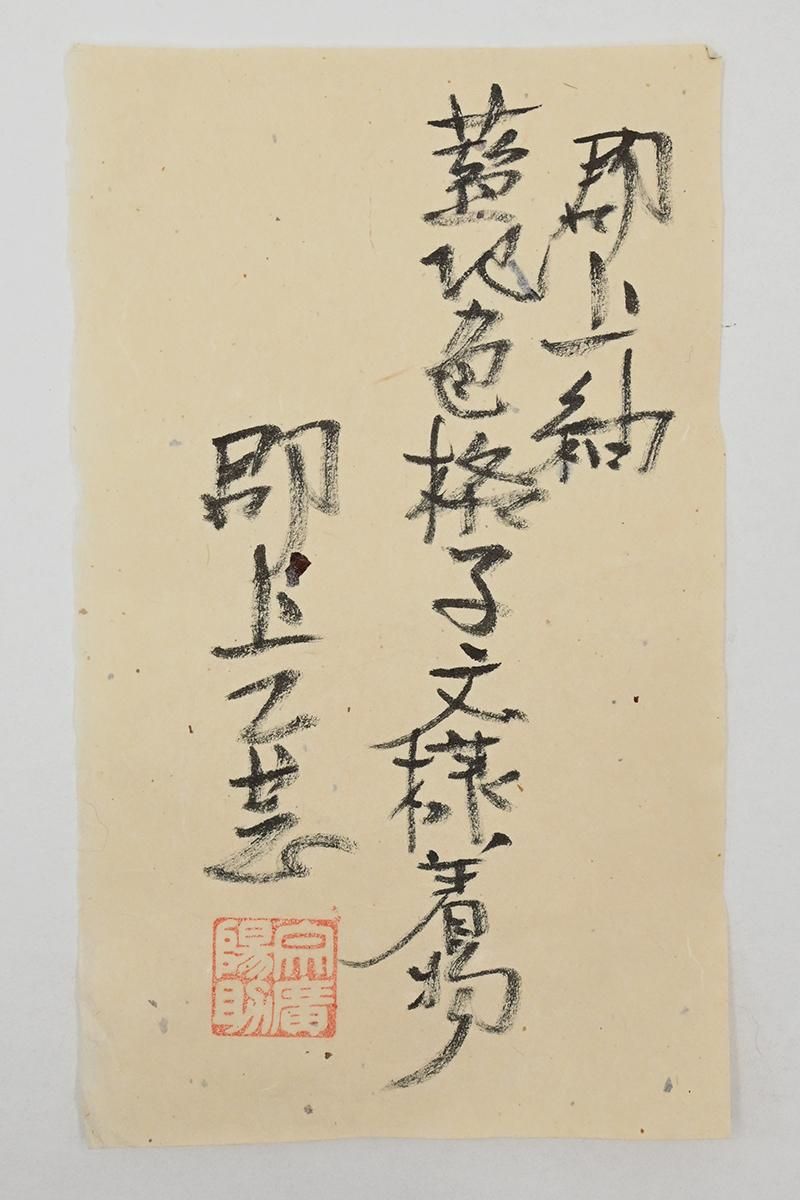 郡上紬
藍地色格子文様着物
郡上工芸
宗廣
陽助